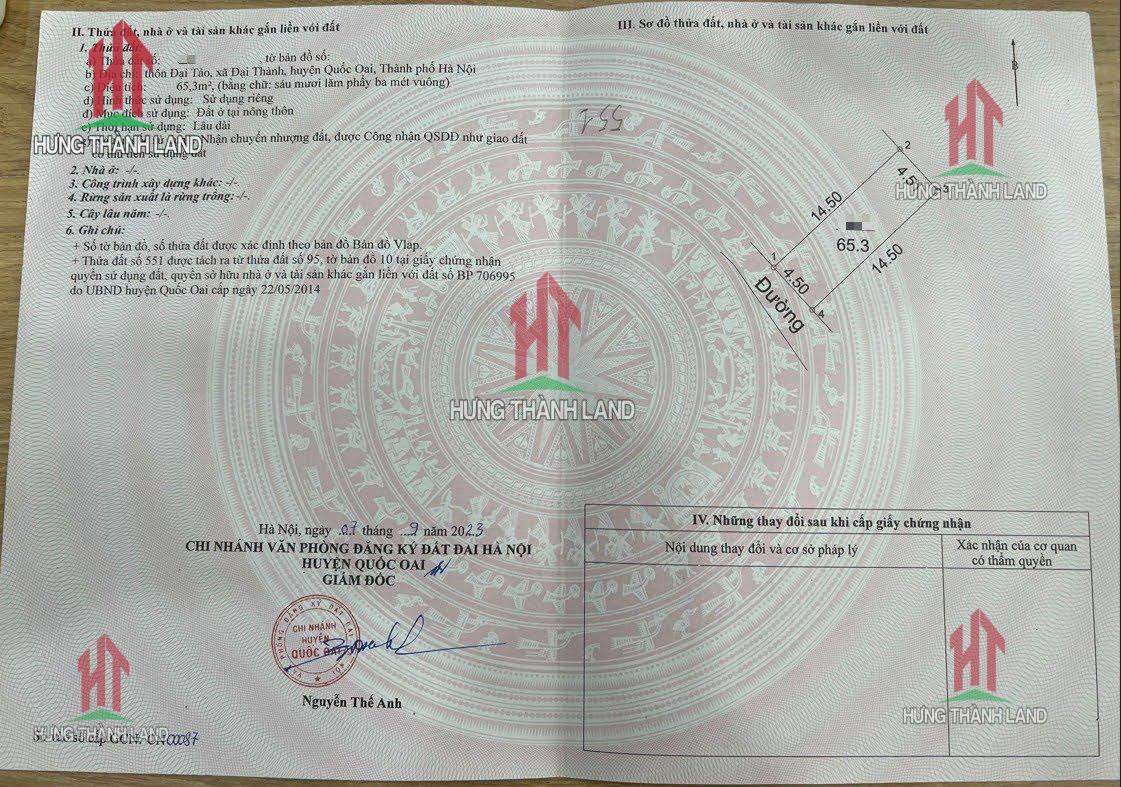 II. Thửa đất, nhà ở và tài sản khác gắn liền với đất
1. Thửa đất:
a) Thửa đất số: , tờ bản đồ số:
b) Địa chỉ: thôn Đại Tảo, xã Đại Thành, huyện Quốc Oai, Thành phố Hà Nội
c) Diện tích: 65,3m², (bằng chữ: sáu mươi lăm phẩy ba mét vuông)
d) Hình thức sử dụng: Sử dụng riêng
đ) Mục đích sử dụng: Đất ở tại nông thôn
e) Thời hạn sử dụng: Lâu dài
Nhận chuyển nhượng đất, được Công nhận QSDĐ như giao đất
có thu tiền sử dụng đất
2. Nhà ở: -/-
3. Công trình xây dựng khác: -/-.
4. Rừng sản xuất là rừng trồng: -/-.
5. Cây lâu năm: -/-.
6. Ghi chú:
+ Số tờ bản đồ, số thửa đất được xác định theo bản đồ Bản đồ Vlap.
+ Thửa đất số 551 được tách ra từ thửa đất số 95, tờ bản đồ 10 tại giấy chứng nhận
quyền sử dụng đất, quyền sở hữu nhà ở và tài sản khác gắn liền với đất số BP 706995
do UBND huyện Quốc Oai cấp ngày 22/05/2014
Hà Nội, ngày 07 tháng 9 năm 2023
CHI NHÁNH VĂN PHÒNG ĐĂNG KÝ ĐẤT ĐAI HÀ NỘI
HUYỆN QUỐC OAI
GIÁM ĐỐC
CHI NHÁNH
HUYỆN
QUỐC OAI
Nguyễn Thế Anh
Số vào sổ cấp GCN: CN00087
III. Sơ đồ thửa đất, nhà ở và tài sản khác gắn liền với đất
B
551
2
4.50
3
14.50
65.3
14.50
1
4.50
4
Đường
IV. Những thay đổi sau khi cấp giấy chứng nhận
Nội dung thay đổi và cơ sở pháp lý
Xác nhận của cơ quan
có thẩm quyền
HƯNG THÀNH LAND
HƯNG THÀNH LAND
HƯNG THÀNH LAND
HƯNG THÀNH LAND
HƯNG THÀNH LAND